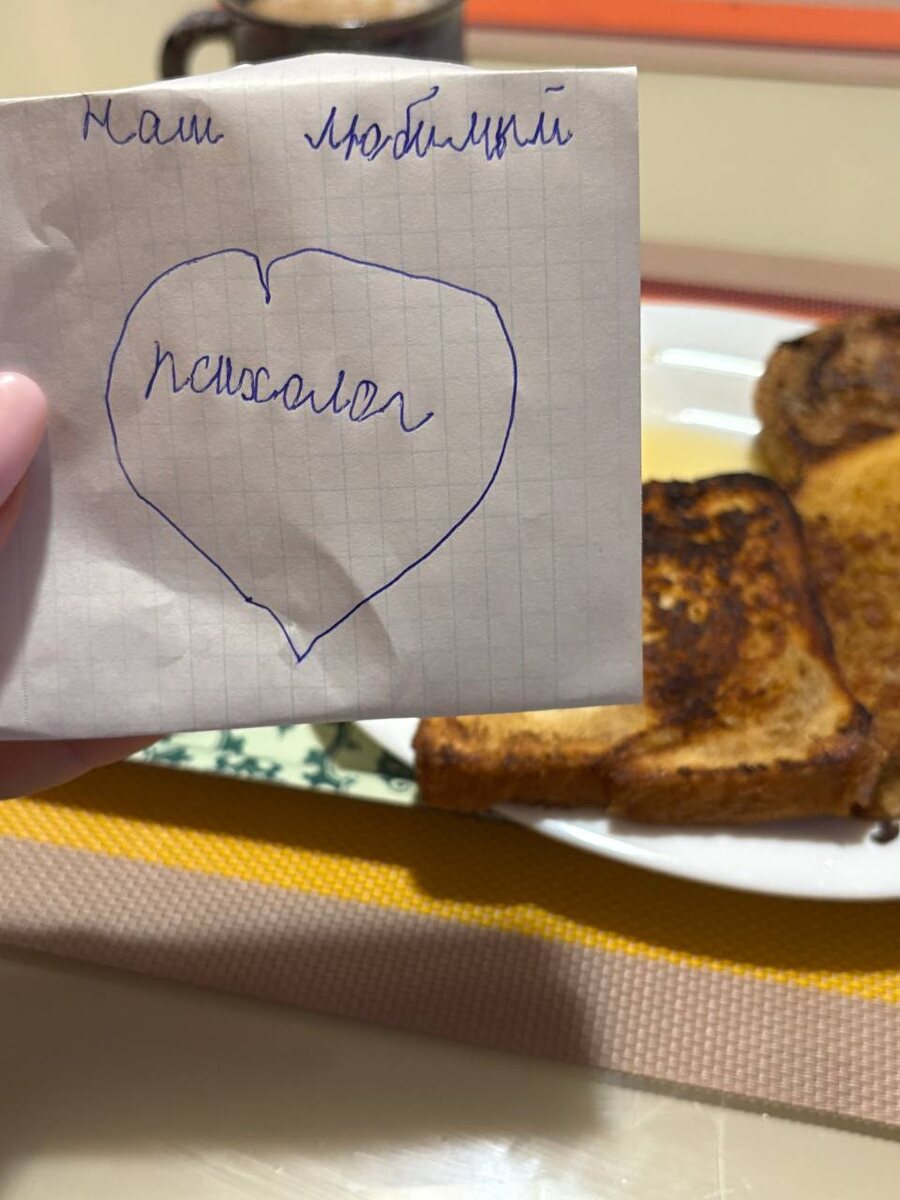 Наш любимый
психолог